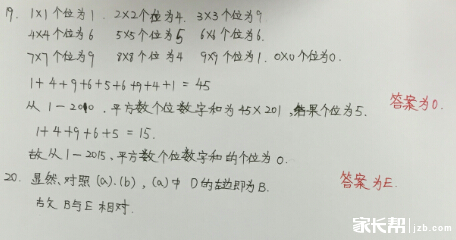 19. 1×1个位为1. 2×2个位为4. 3×3个位为9.
4×4个位为6 5×5个位为5 6×6个位为6.
7×7个位为9 8×8个位为4 9×9个位为1. 0×0个位为0.
1+4+9+6+5+6+9+4+1=45
从1-2010.平方数个位数字和为45×201,结果个位为5. 答案为0.
1+4+9+6+5=15.
故从1-2015.平方数个位数字和的个位为0.
20. 显然.对照(a).(b),(a)中D的左边即为B. 答案为E.
故B与E相对.
家长帮 jzb.com